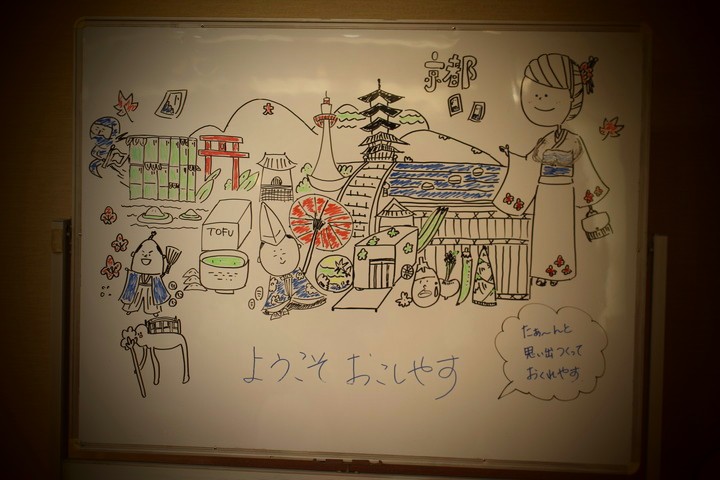 京都
大
TOFU
ようこそ おこしやす
たぁ~んと
思い出つくって
おくれやす